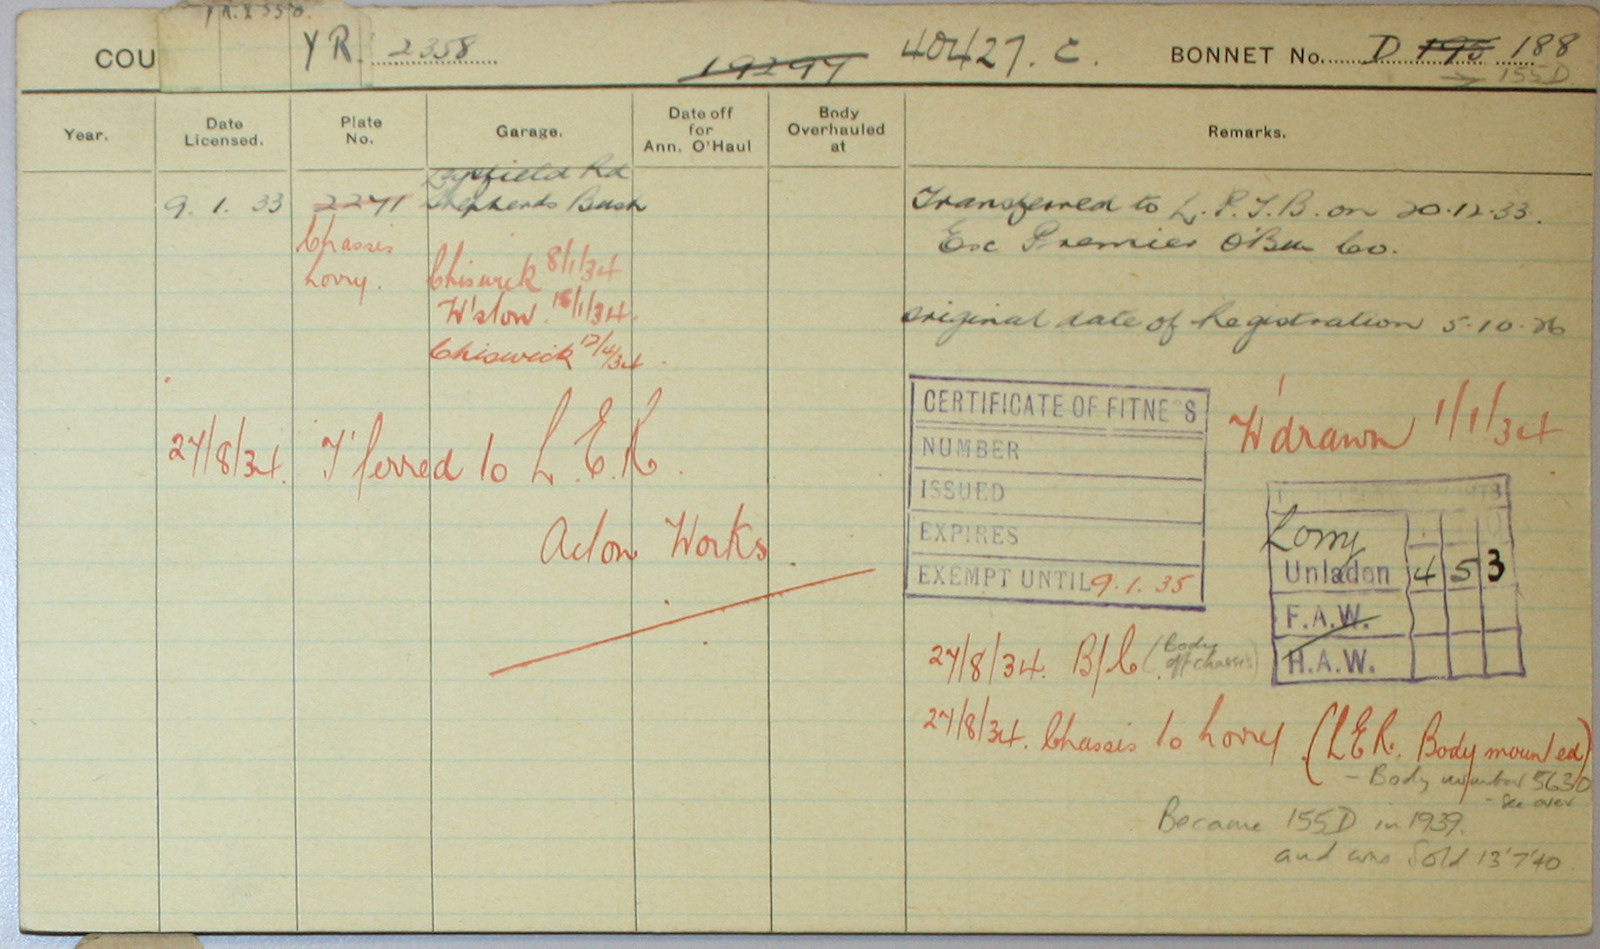 YR. 2358
COU
YR. 2358 19297 40427. C. BONNET No. D 195 188
155D
Year. Date Licensed. Plate No. Garage. Date off for Ann. O'Haul Body Overhauled at Remarks.
field Rd
9. 1. 33 2271 Shepherds Bush Transferred to L.P.T.B. on 20.12.33.
Chassis Exc Premier O'Bus Co.
Lorry. Chiswick 8/1/34
W'slow. 15/1/34 original date of Registration 5.10.26
Chiswick 12/4/34
CERTIFICATE OF FITNE S W'drawn 1/1/34
NUMBER
27/8/34. T'ferred to L.E.R.
ISSUED
EXPIRES Lorry
Acton Works.
EXEMPT UNTIL 9.1.35 Unladen 4 5 3
F.A.W.
27/8/34. B/C (Body off chassis) H.A.W.
27/8/34. Chassis to Lorry (LER. Body mounted)
- Body number 5630
- See over
Became 155D in 1939.
and was Sold 13'7'40.